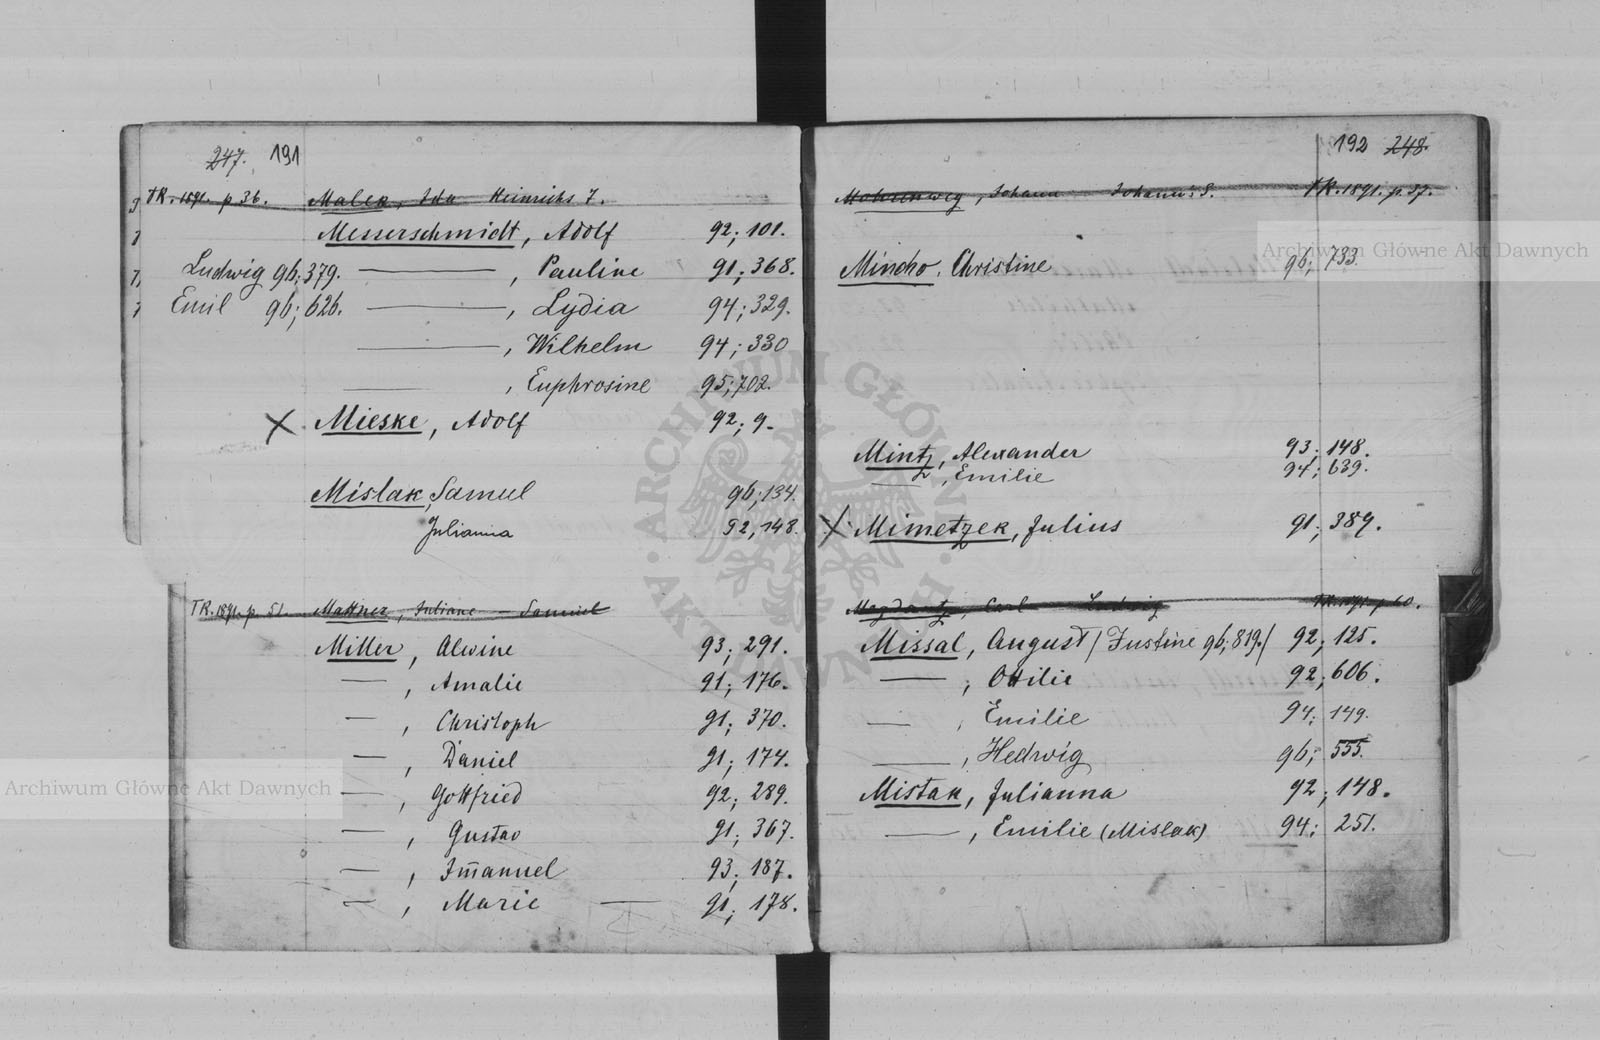 247. 191
TR. 1891. p 36. Malek, Ida Heinrichs T.
Messerschmidt, Adolf 92; 101.
Ludwig 96; 379. ——, Pauline 91; 368.
Emil 96; 626. ——, Lydia 94; 329.
——, Wilhelm 94; 330
——, Euphrosine 95; 702.
X Mieske, Adolf 92; 9.
Mislak, Samuel 96; 134.
Julianna 92, 148.
TR. 1891. p. 51. Mattner, Juliane — Samuel
Miller, Alwine 93; 291.
—, Amalie 91; 176.
—, Christoph 91; 370.
—, Daniel 91; 174.
—, Gottfried 92; 289.
—, Gustav 91; 367.
—, Im̄anuel 93; 187.
—, Marie — 91; 178.
192 248.
Johann Johann's S. TR. 1891. p. 37.
Mincho, Christine 96; 733.
Mintz, Alexander 93; 148.
——, Emilie 94; 639.
X Mimetzek, Julius 91; 389.
Magdantz, Carl Ludwig TR. 1891. p 60.
Missal, August / Justine 96; 819. / 92; 125.
——, Ottilie 92; 606.
——, Emilie 94; 149.
——, Hedwig 96; 555.
Mistak, Julianna 92; 148.
——, Emilie (Mislak) 94; 251.
Archiwum Główne Akt Dawnych
Archiwum Główne Akt Dawnych
ARCHIWUM GŁÓWNE AKT DAWNYCH